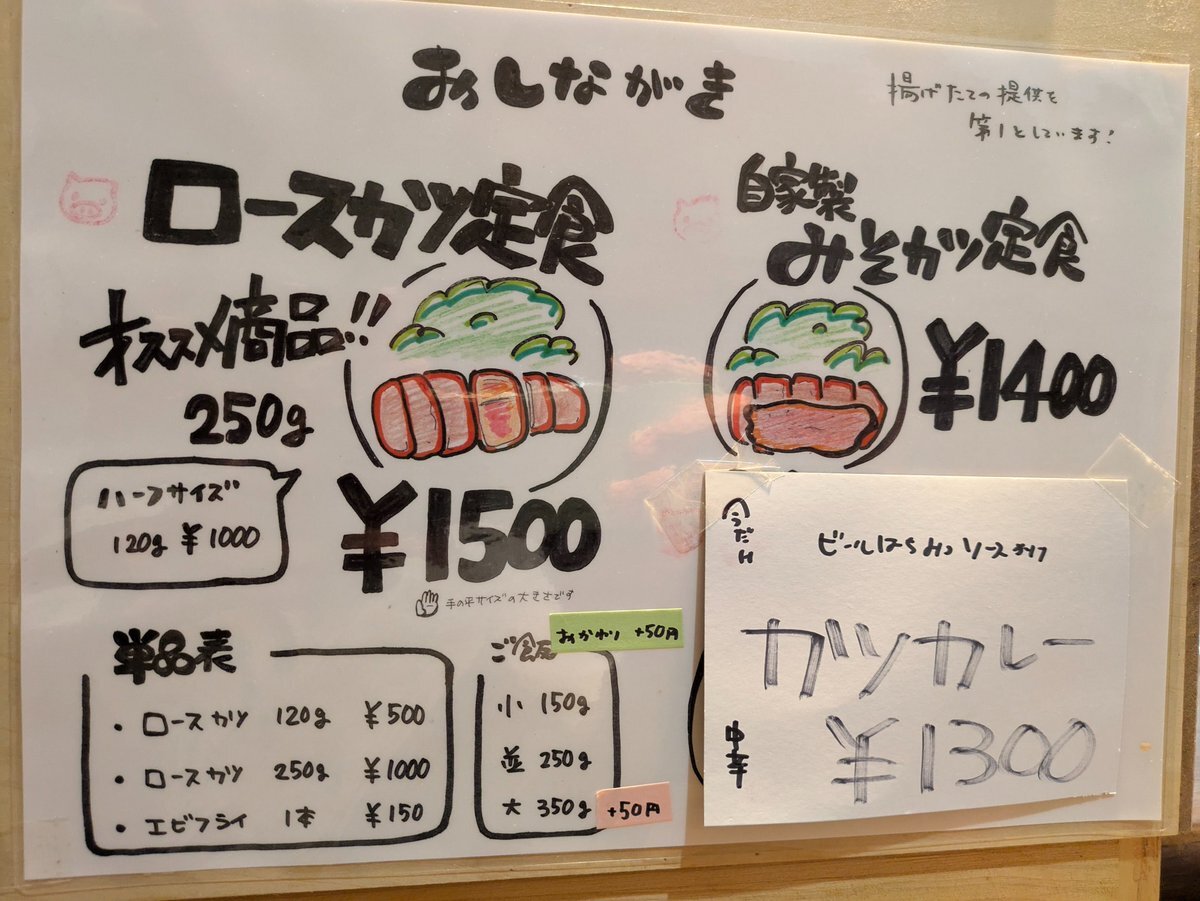 おしながき
揚げたての提供を
第1としています!
ロースカツ定食
オススメ商品!!
250g
ハーフサイズ
120g ¥1000
¥1500
手の平サイズの大きさです
自家製
みそカツ定食
¥1400
今だけ
ビール
ソース
カツカレー
¥1300
中辛
単品表
・ロースカツ 120g ¥500
・ロースカツ 250g ¥1000
・エビフライ 1本 ¥150
ご飯
おかわり +50円
小 150g
並 250g
大 350g +50円